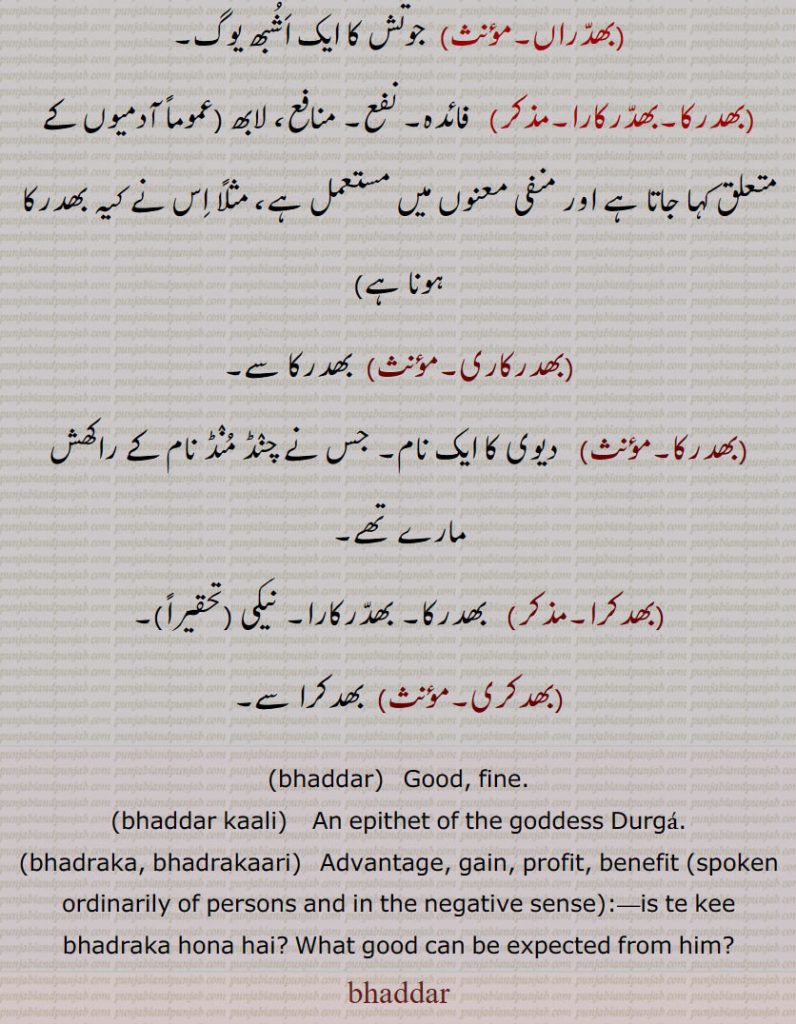 (بھدّراں۔مؤنث) جوتش کا ایک اَشُبھ یوگ۔
(بھدرکا۔بھدّرکارا۔مذکر) فائدہ۔ نفع۔ منافع، لابھ (عموماً آدمیوں کے
متعلق کہا جاتا ہے اور منفی معنوں میں مستعمل ہے، مثلاً اِس نے کیہ بھدرکا
ہونا ہے)
(بھدرکاری۔مؤنث) بھدرکا سے۔
(بھدرکا۔مؤنث) دیوی کا ایک نام۔ جس نے چنڈ مُنڈ نام کے راکھش
مارے تھے۔
(بھدکرا۔مذکر) بھدرکا۔ بھدّرکارا۔ نیکی (تحقیراً)۔
(بھدکری۔مؤنث) بھدکرا سے۔
(bhaddar) Good, fine.
(bhaddar kaali) An epithet of the goddess Durgá.
(bhadraka, bhadrakaari) Advantage, gain, profit, benefit (spoken
ordinarily of persons and in the negative sense):—is te kee
bhadraka hona hai? What good can be expected from him?
bhaddar